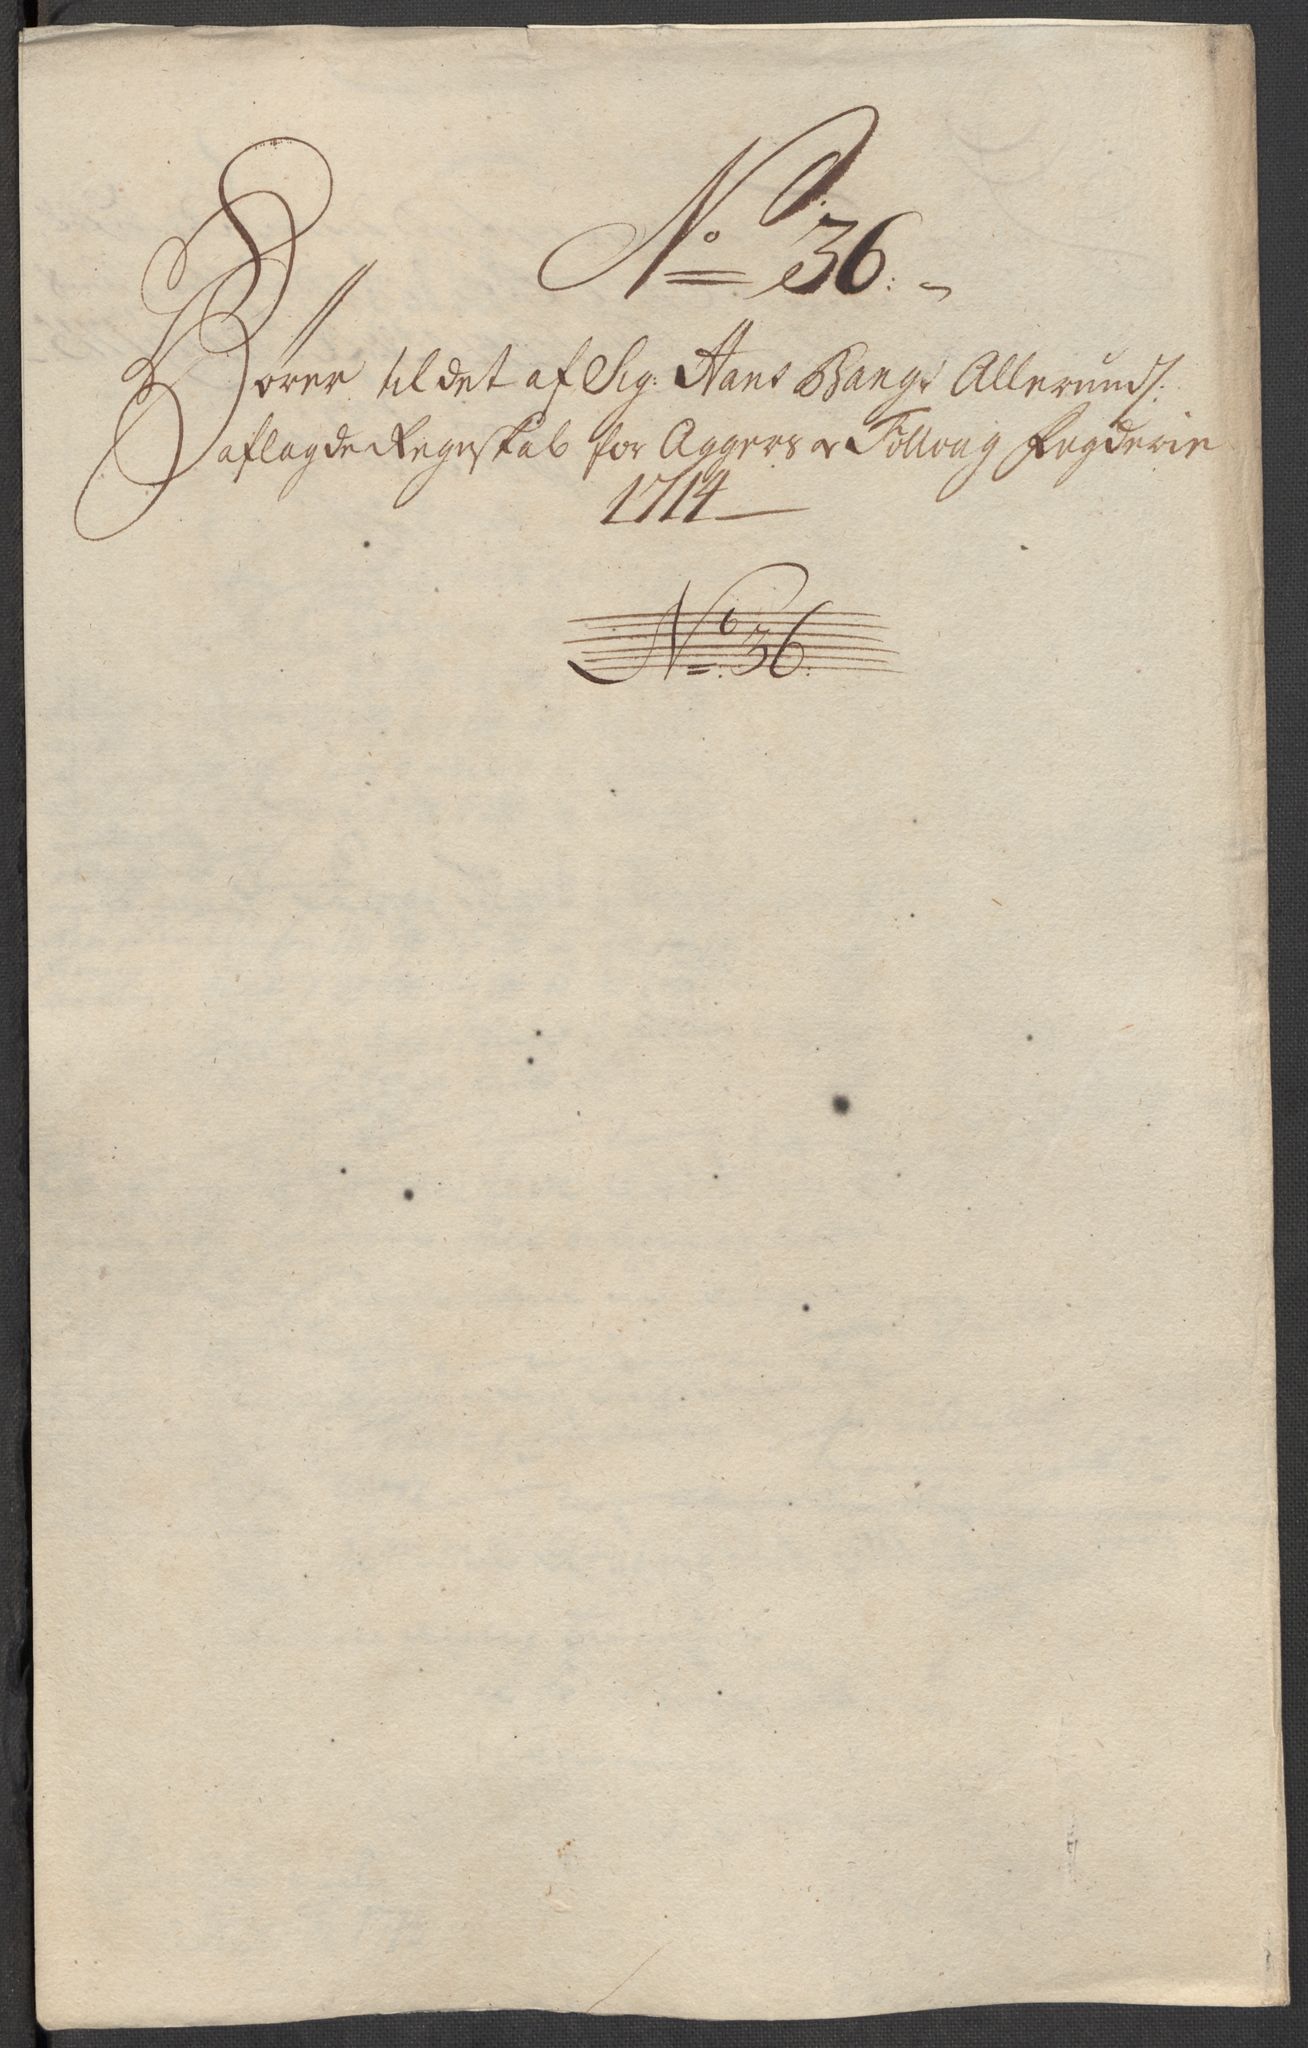 No 36:
Hører til det af Sig: Hans Bangs Allerunds:
aflagde Regnskab for Aggers og Folloug Fogderie
1714
No: 36: